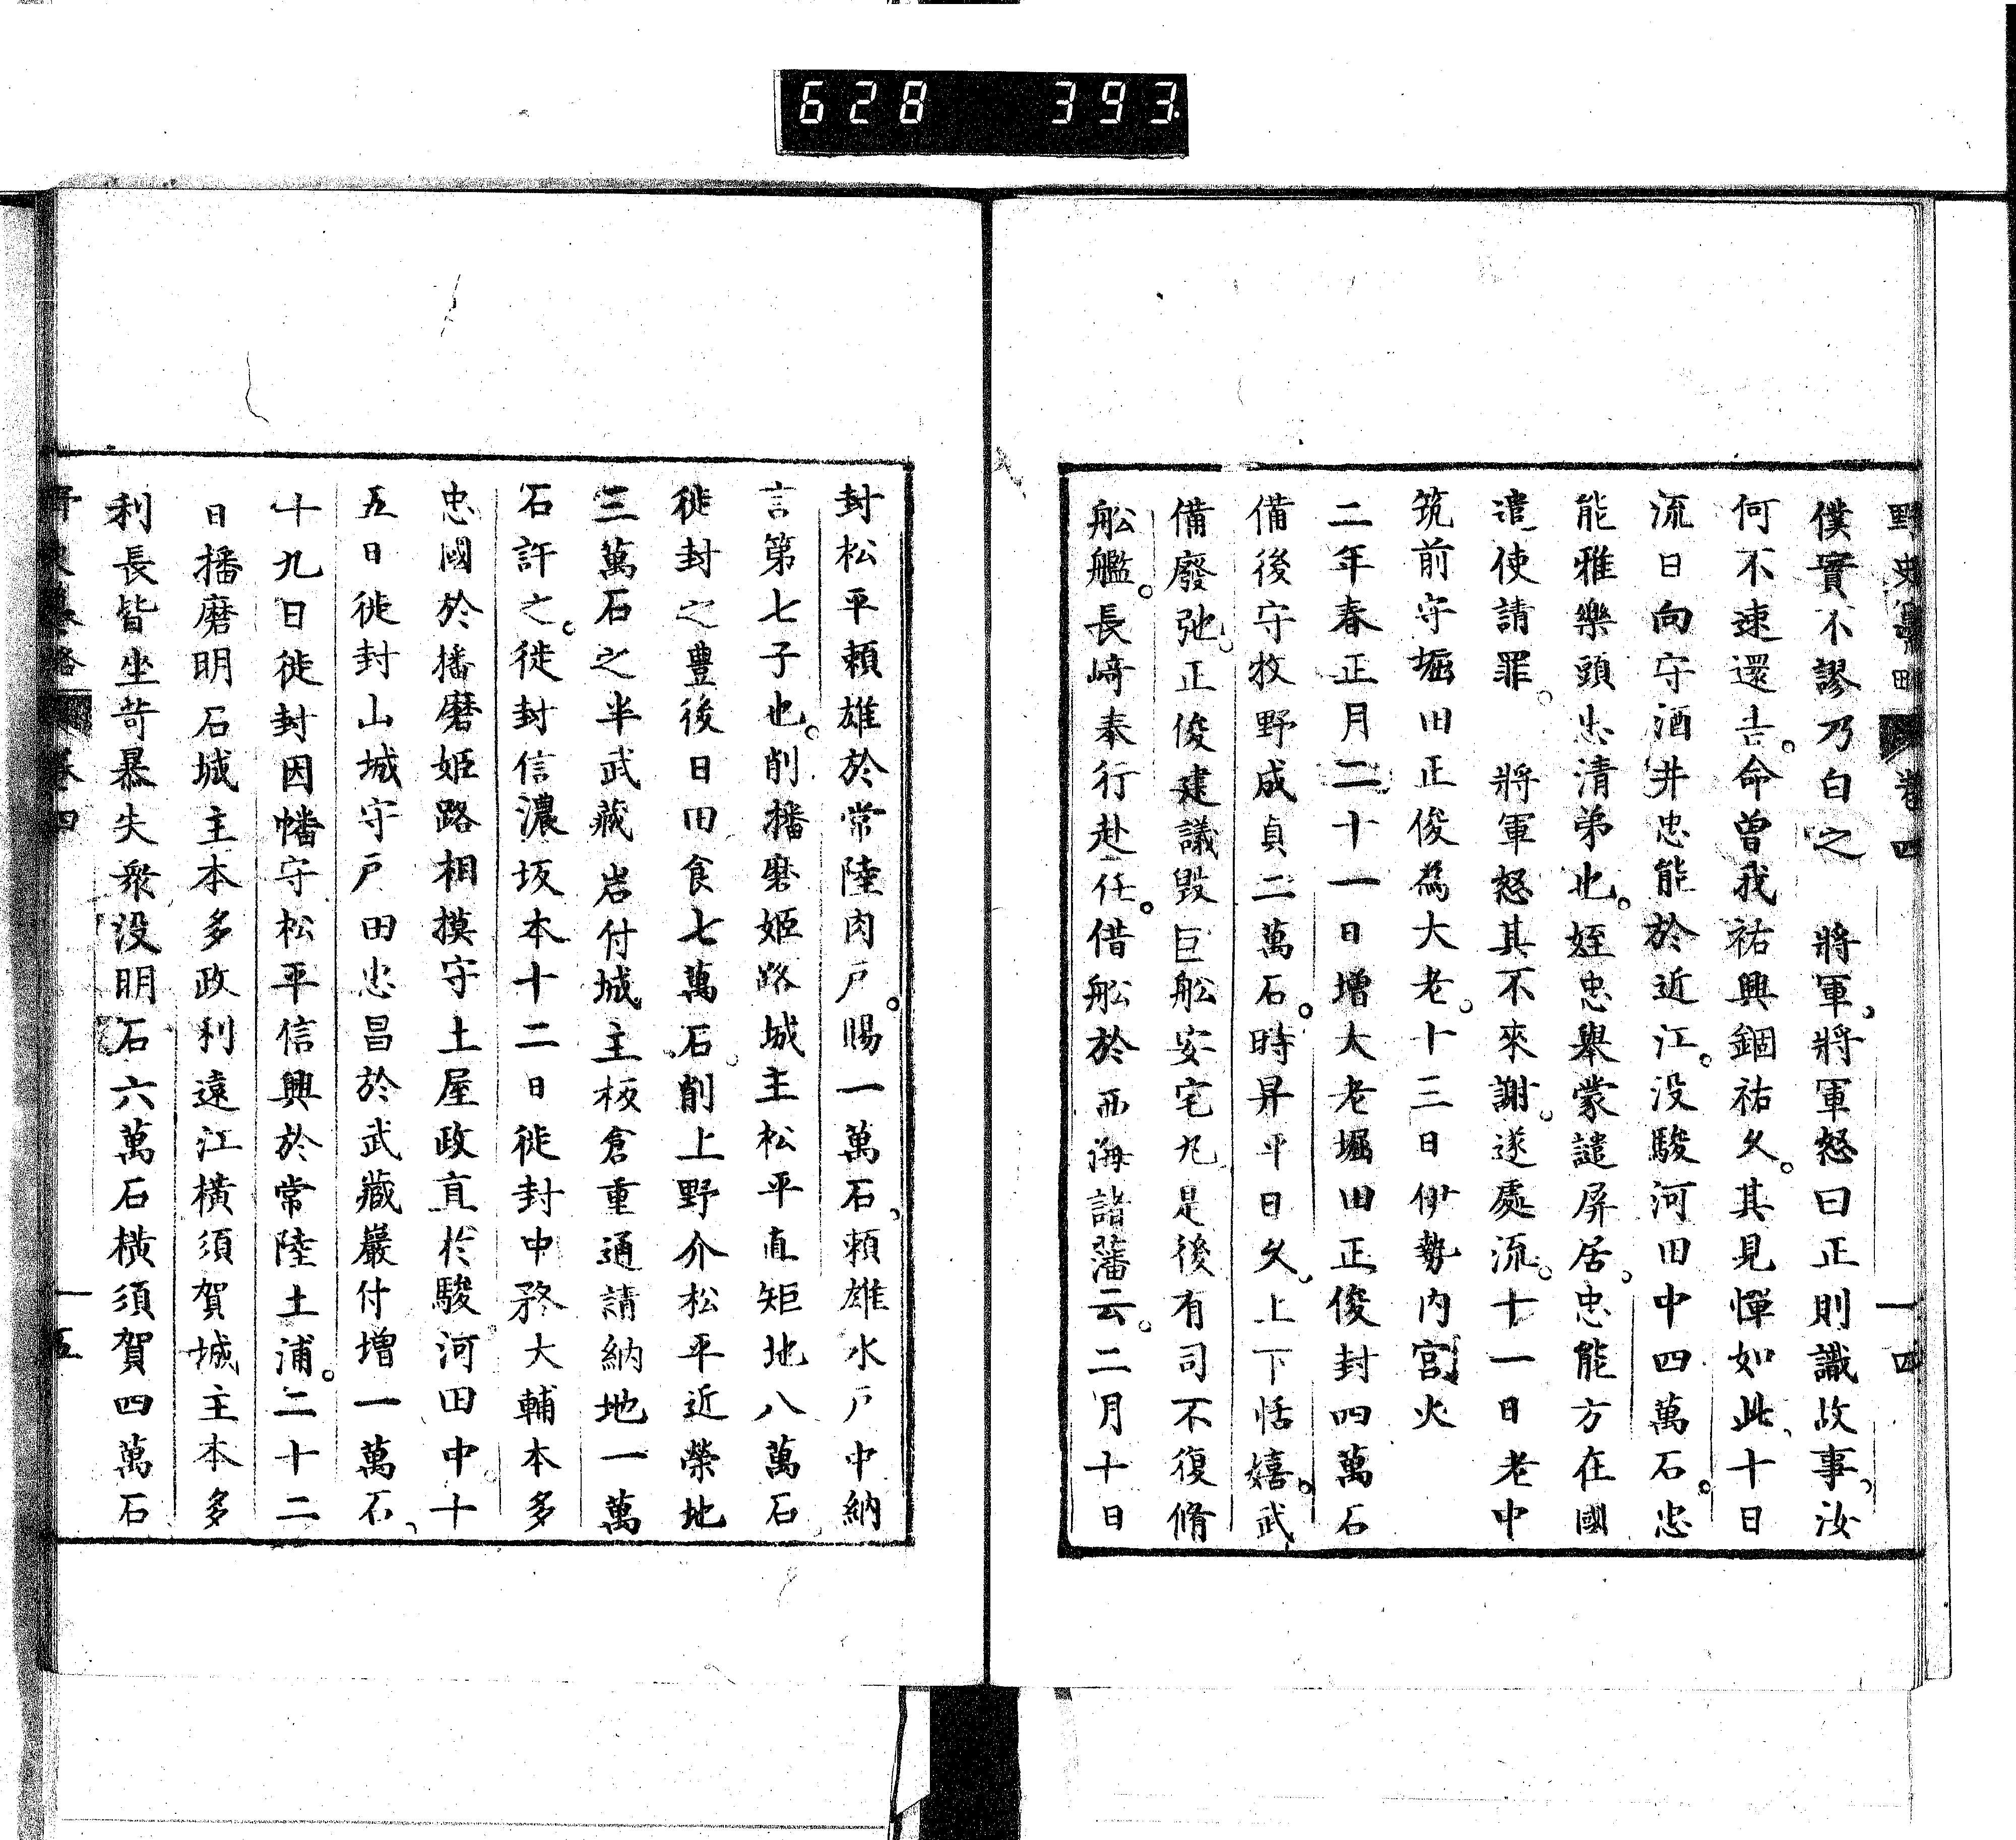 628 393
僕實不謬乃白之　將軍、將軍怒曰正則識故事、汝
何不速還吉。命曽我祐興錮祐久。其見憚如此、十日
流日向守酒井忠能於近江。没駿河田中四萬石。忠
能雅樂頭忠清弟也。姪忠舉蒙譴屏居。忠能方在國
遣使請罪。　將軍怒其不來謝。遂處流。十一日老中
筑前守堀田正俊為大老。十三日伊勢内宮火
二年春正月二十一日增大老堀田正俊封四萬石
備後守牧野成貞二萬石。時昇平日久、上下恬嬉。武
備廢弛。正俊建議毀巨舩安宅丸是後有司不復脩
舩艦。長﨑奉行赴任。借舩於西海諸藩云。二月十日
野史 卷四 一四
封松平頼雄於常陸肉戸。賜一萬石、頼雄水戸中納
言第七子也。削播磨姫路城主松平直矩地八萬石
徙封之豊後日田食七萬石。削上野介松平近榮地
三萬石之半武藏岩付城主板倉重通請納地一萬
石許之。徙封信濃坂本十二日徙封中務大輔本多
忠國於播磨姫路相摸守土屋政直於駿河田中十
五日徙封山城守戸田忠昌於武藏巖付增一萬石、
十九日徙封因幡守松平信興於常陸土浦。二十二
日播磨明石城主本多政利遠江橫須賀城主本多
利長皆坐苛暴失衆没明石六萬石橫須賀四萬石
卷四 一五